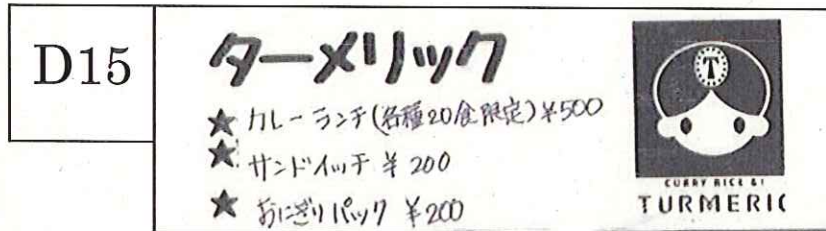 D15
ターメリック
★ カレーランチ(各種20食限定)¥500
★ サンドイッチ ¥200
★ おにぎりパック ¥200
T
CURRY RICE &!
TURMERIC